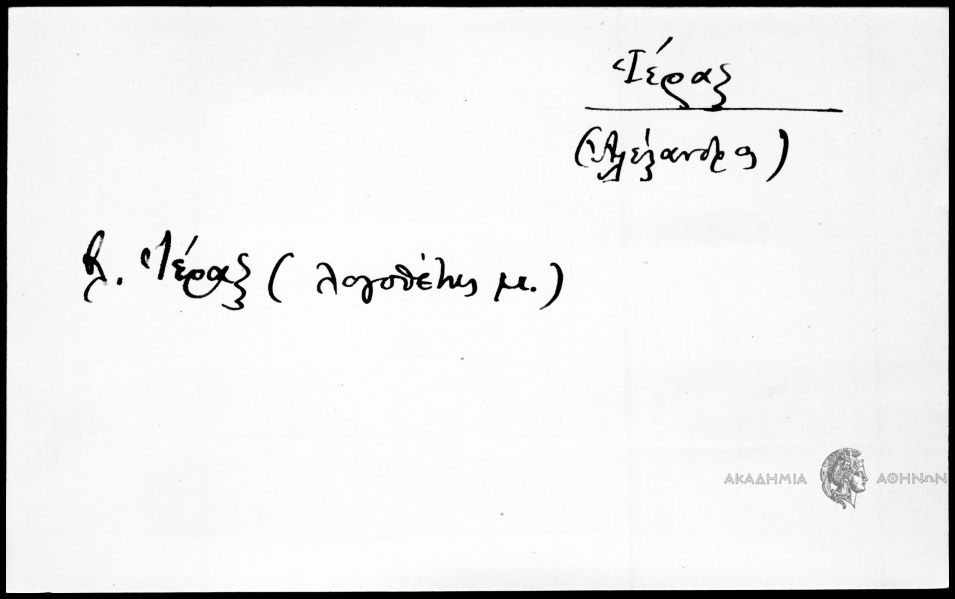 Ἱέραξ
(Ἀλέξανδρος)
βλ. Ἱέραξ (λογοθέτης μ.)
ΑΚΑΔΗΜΙΑ ΑΘΗΝΩΝ